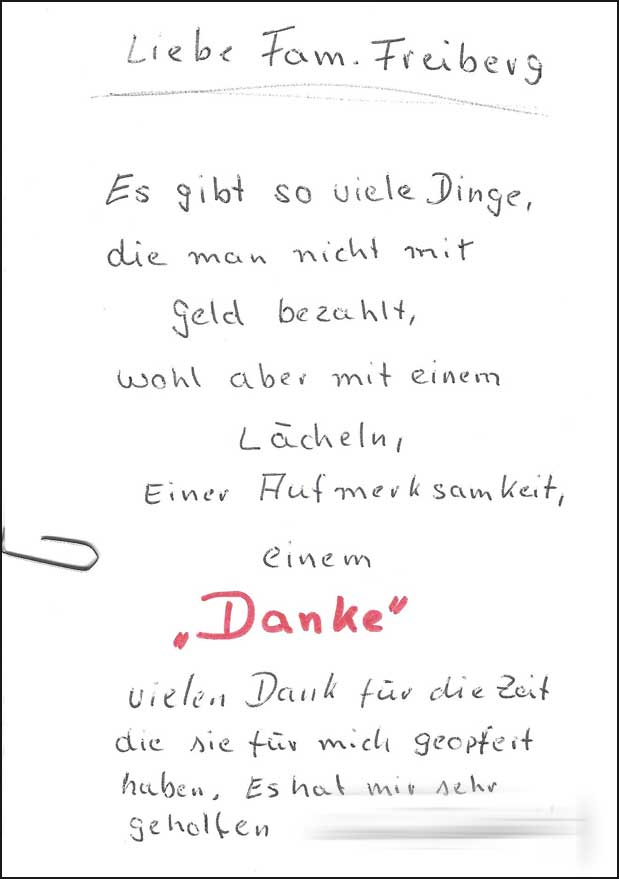 Liebe Fam. Freiberg
Es gibt so viele Dinge,
die man nicht mit
Geld bezahlt,
wohl aber mit einem
Lächeln,
Einer Aufmerksamkeit,
einem
„Danke"
vielen Dank für die Zeit
die sie für mich geopfert
haben, Es hat mir sehr
geholfen